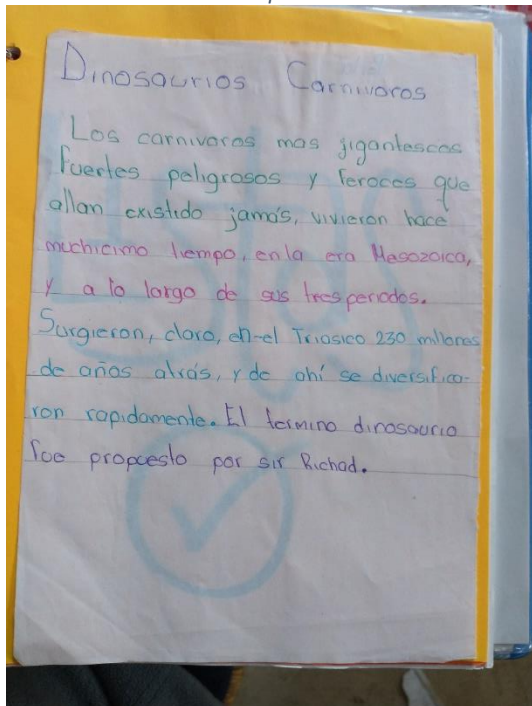 Dinosaurios Carnivoros
Los carnivoros mas jigantescos
fuertes peligrosos y feroces que
allan existido jamás, vivieron hace
muchicimo tiempo, en la era Mesozoica,
y a lo largo de sus tres periodos.
Surgieron, claro, en el Triasico 230 millones
de años atrás, y de ahí se diversifica-
ron rapidamente. El termino dinosaurio
foe propoesto por sir Richad.